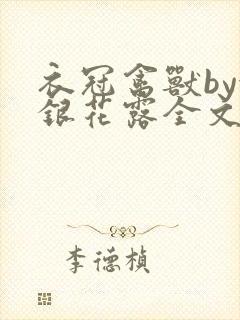 衣冠禽獸by
銀花露全文
李德楨